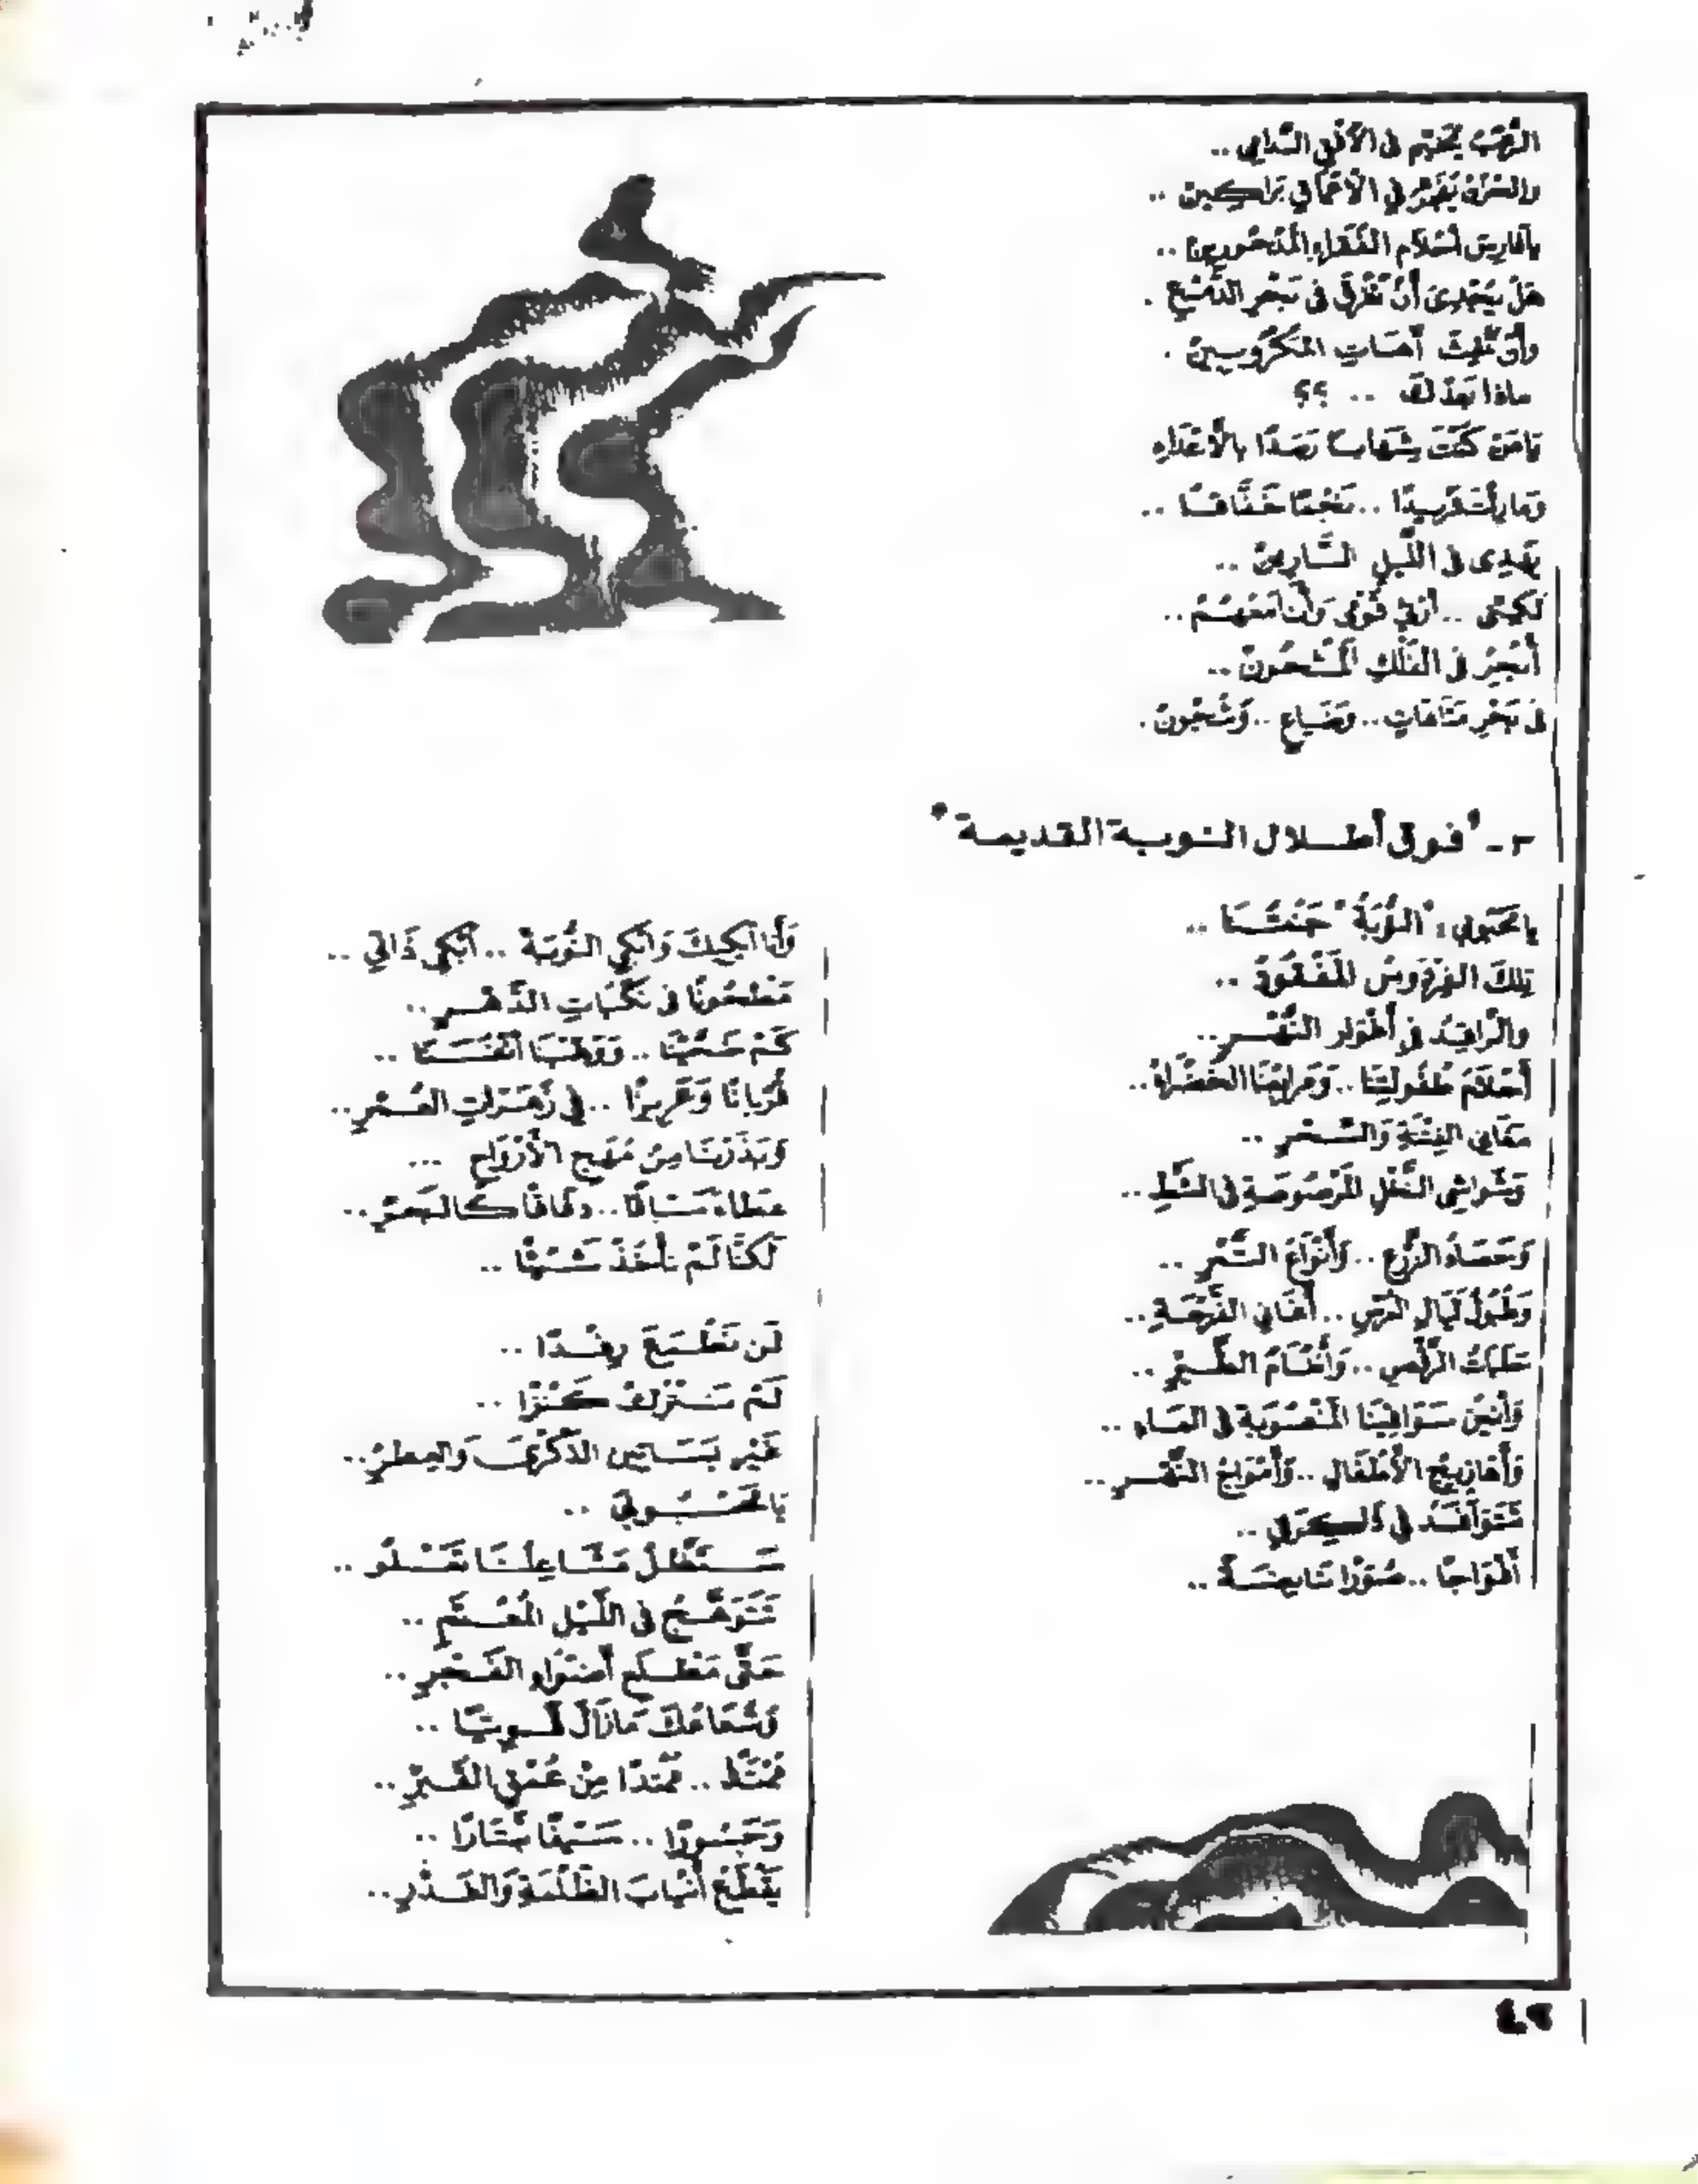 الرُّعْبُ يُخَيِّم فى الأُفُقِ الدَّامِى ..
والحُزْنُ يُفَجِّرُ فِي الأَعْمَاقِ بَرَاكِينْ ..
يافارِسَ أحْلَام الفُقَرَاءِ المَدْحُورِينْ ..
هَلْ يُجْدِى أَنْ نَغْرَقَ فى بَحْرِ الدَّمْعِ .
وأَنْ آهَاتِ المَكْرُوبِينْ .
ماذا بَعْدَكَ .. ؟؟
يَامَنْ كُنْتَ شِهَابًا رَصَدًا بالأَعْدَاءِ
وَمازِلْتَ فَرِيدًا .. نَجْمًا خَفَّاقًا ..
يَهْدِى فى اللَّيلِ السَّارِينْ ..
لَكِنِّى .. أَرْثِى قَوْمِى وَأَنَا مَعَهُمْ ..
أُبْحِرُ فى الفُلْكِ المَشْحُونْ ..
فى بَحْرِ مَتَاهَاتٍ .. وَضَيَاعٍ .. وَشُجُونْ .
٣ - "فوق أطلال النوبة القديمة"
يامَحْبُوبِي : "النُّوبَةُ" جَنَّتُنَا ..
تِلكَ الفِرْدَوسُ المَفْقُودْ ..
والرَّاقِدُ فى أَغْوَارِ النَّهْرِ ..
أحْلَامُ طُفُولَتِنَا .. وَمَرابِعُنَا الخَضْرَاءْ ..
مَغَانِى الفِتْنَةِ وَالسِّحْرِ ..
وَشَوَاشِى النَّخْلِ المَرْصُوصَةِ فى الشَّطِّ ..
وَحَصَادُ الزَّرْعِ .. وَأَنْوَاعُ التَّمْرِ ..
وَطُبُولُ لَيَالِى العُرْسِ .. أَغَانِى الفَرْحَةِ ..
حَلَبَاتُ الرَّقْصِ .. وَأَنْغَامُ الطَّيْرِ ..
وَأَنِينُ سَوَاقِينَا المَنْصُوبَةِ فى الماءِ ..
وَأَهَازِيجُ الأَطْفَالِ .. وَأَمْوَاجُ النَّهْرِ ..
تَتَوَافَدُ فى ذَاكِرَتِى ..
أَفْوَاجًا .. صُوَرًا نَابِضَةً ..
وَأَنا أبْكِيكَ وَأَبْكِي النُّوبَةْ .. أَبْكِى ذَاتِي ..
مَطْحُونًا فى نَكَبَاتِ الدَّهْرِ ..
كَمْ ضَحَّيْنَا .. وَوَهَبْنَا أَنْفُسَنَا ..
قُرْبَانًا وَعَزِيزًا .. فِي زَهَرَاتِ العُمْرِ ..
وَبَذَرْنَا مِنْ مُهَجِ الأَرْوَاحِ ...
عَطَاءً سَبَّاقًا .. دَفَّاقًا كالبَحْرِ ..
لَكِنَّا لَمْ نأخُذْ شَيْئًا ..
لَن نَطْمَعَ رِفْدًا ..
لَمْ نَتْرُكْ كَنْزًا ..
غَيْرَ بَسَاتِين الذِّكْرَى وَالعِطْرْ ..
يَامَحْبُوبِى ..
سَتَظَلُّ مَشَاعِلُنَا تَعْلُو ..
تَتَوَهَّجُ فى اللَّيْلِ المُعْتِمِ ..
حَتَّى مَطْلَعِ أَضْوَاءِ الفَجْرِ ..
وَشُعَاعُكَ مَازَالَ قَوِيًّا ..
مُمْتَدًّا مِنْ عُمْقِ القَبْرِ ..
وَجَسُورًا .. سَيْفًا بَتَّارًا ..
يَقْطَعُ أَنْيَابَ الظُّلْمَةِ وَالغَدْرِ ..